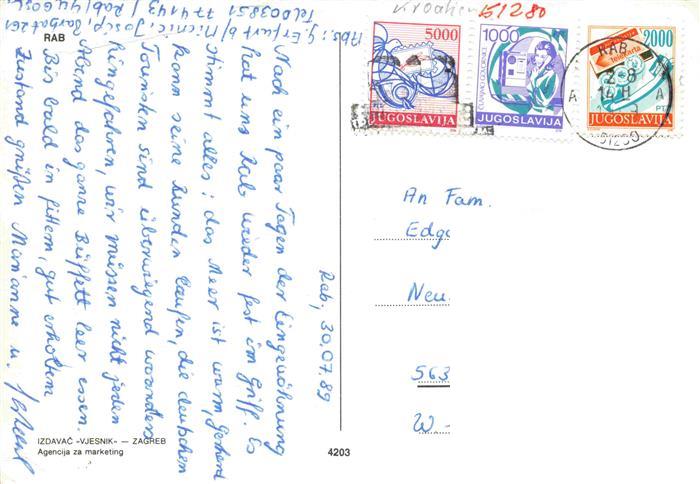 Abs. G. Erfurt b/Nicnic Josip, Barbat 261
Tel 003851 774143 / Rab/Yugosl.
RAB
Rab, 30.07.89
Nach ein paar Tagen der Eingewöhnung
hat uns Rab wieder fest im Griff. Es
stimmt alles: das Meer ist warm, Gerhard
kann seine Runden laufen, die deutschen
Touristen sind überwiegend woanders
hingefahren, wir müssen nicht jeden
Abend das ganze Büffett leer essen.
Bis bald in fittem, gut erholtem
Zustand grüßen Marianne u.
IZDAVAČ «VJESNIK» — ZAGREB
Agencija za marketing
4203
Kroatien
15/2.80
5000
PTT
JUGOSLAVIJA
1000
JUGOSLAVIJA
2000
telekarta
PTT
JUGOSLAVIJA
RAB
2-8
14 H
A
A
51280
An Fam.
Edg
Neu
563
W-